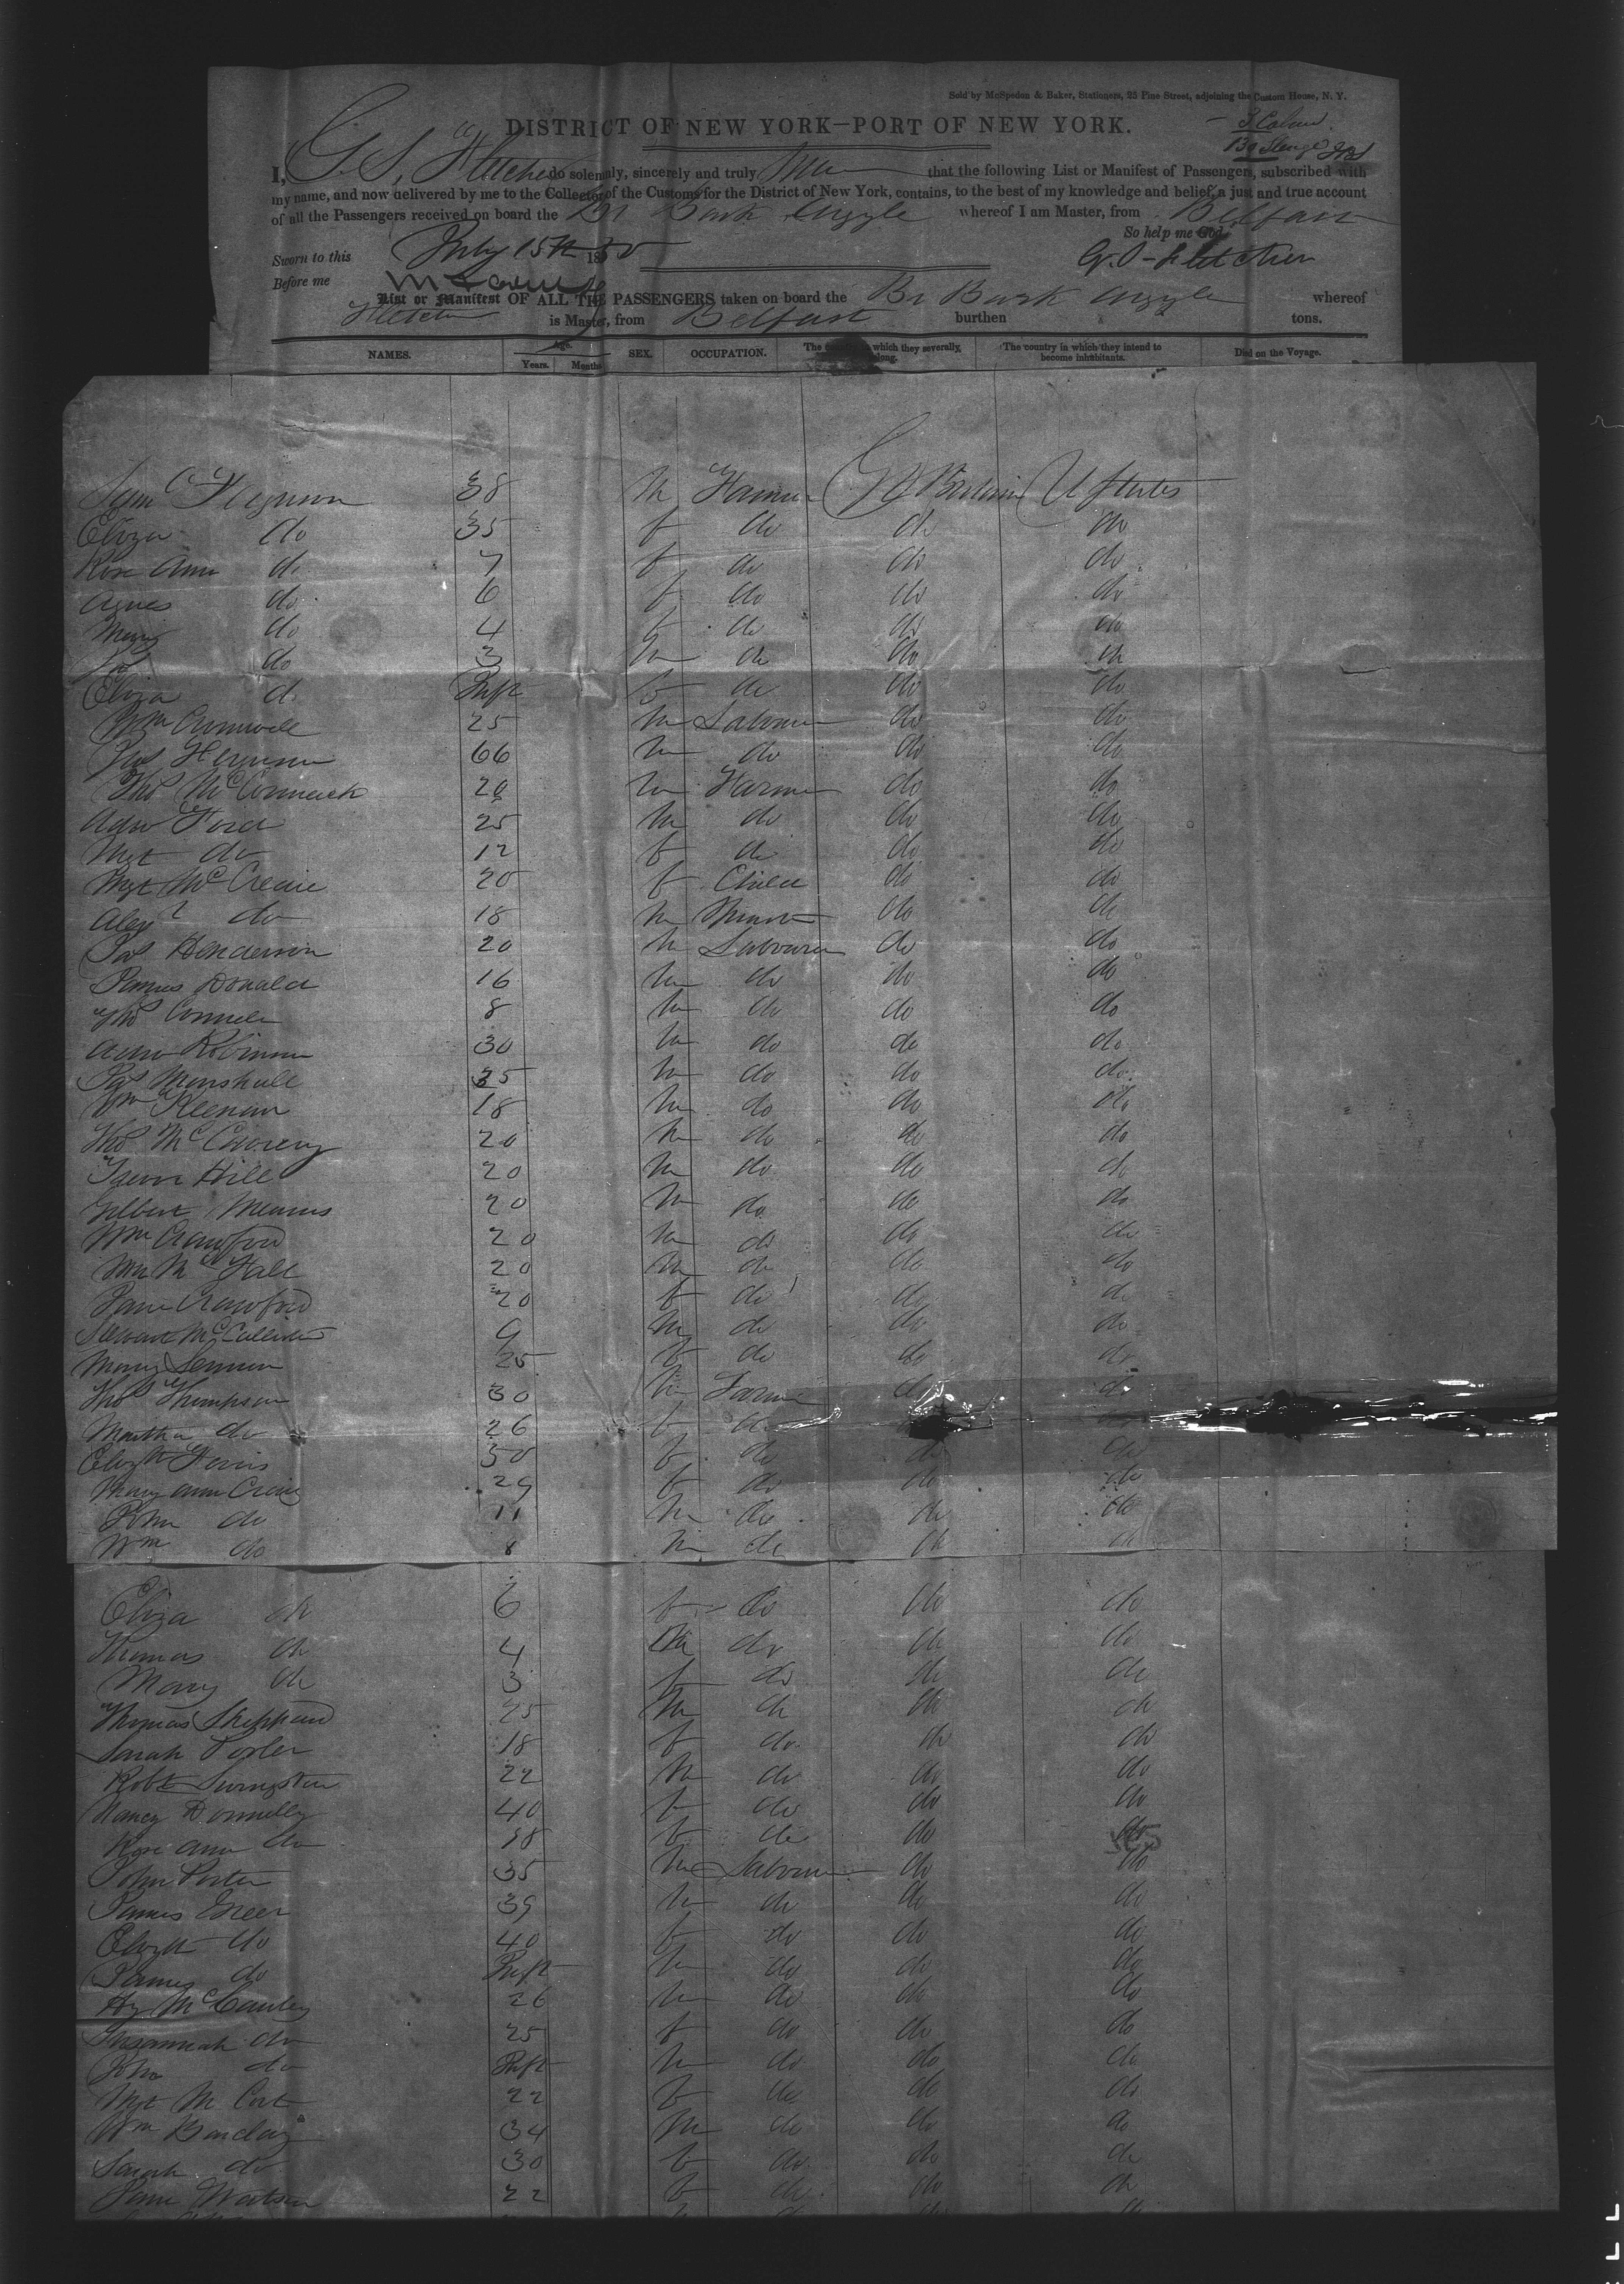 Sold by McSpedon & Baker, Stationers, 25 Pine Street, adjoining the Custom House, N. Y.
DISTRICT OF NEW YORK—PORT OF NEW YORK.
3 Cabin
130 Steerage
I, G. S. Fletcher do solemnly, sincerely and truly that the following List or Manifest of Passengers, subscribed with
my name, and now delivered by me to the Collector of the Customs for the District of New York, contains, to the best of my knowledge and belief, a just and true account
of all the Passengers received on board the Br Bark Argyle whereof I am Master, from Belfast
So help me God.
Sworn to this July 15th 1850 G. S. Fletcher
Before me
List or Manifest OF ALL THE PASSENGERS taken on board the Br Bark Argyle whereof
Fletcher is Master, from Belfast burthen tons.
NAMES. Age. Years. Months SEX. OCCUPATION. The country to which they severally belong. The country in which they intend to become inhabitants. Died on the Voyage.
Saml Ferguson 38 m Farmer Gt Britain U States
Eliza do 35 f do do do
Rose Ann do 7 f do do do
Agnes do 6 f do do do
Mary do 4 f do do do
do 3 m do do do
Eliza do Inft f do do do
Wm Cromwell 25 m Labourer do do
Jas Ferguson 66 m do do do
Thos McCormick 20 m Farmer do do
Adw Ford 25 m do do do
Mgt do 12 f do do do
Mgt McCreaie 20 f Child do do
Alexr do 18 m do do
Jas Henderson 20 m Labourer do do
James Donald 16 m do do do
Thos Connell 8 m do do do
Adw Robinson 30 m do do do
Jas Marshall 25 m do do do
Wm Keenan 18 m do do do
Thos 20 m do do do
Hill 20 m do do do
Gilbert Mearns 20 m do do do
Wm Crawford 20 m do do do
Wm McFall 20 m do do do
Jane Crawford 20 f do do do
Stewart McCallister 9 m do do do
Mary Lennon 25 f do do do
Thos Thompson 30 m Farmer do do
Martha do 26 f do do
Elizth Ferris 50 f do do do
Mary Ann Craig 29 f do do do
John do 11 m do do do
Wm do 8 m do do do
Eliza do 6 f do do do
Thomas do 4 m do do do
Mary do 3 f do do do
Thomas Shepherd 25 m do do do
Sarah Porter 18 f do do do
Robt Livingston 22 m do do do
Nancy Donnelly 40 f do do do
Rose Ann do 18 f do do do
John Porter 35 m Labourer do do
James Greer 39 m do do do
Elizth do 40 f do do do
James do Inft m do do do
Hy McCauley 26 m do do do
Susannah do 25 f do do do
John do Inft m do do do
Mgt McCort 22 f do do do
Wm Barclay 34 m do do do
Sarah do 30 f do do do
Jane Watson 22 f do do do